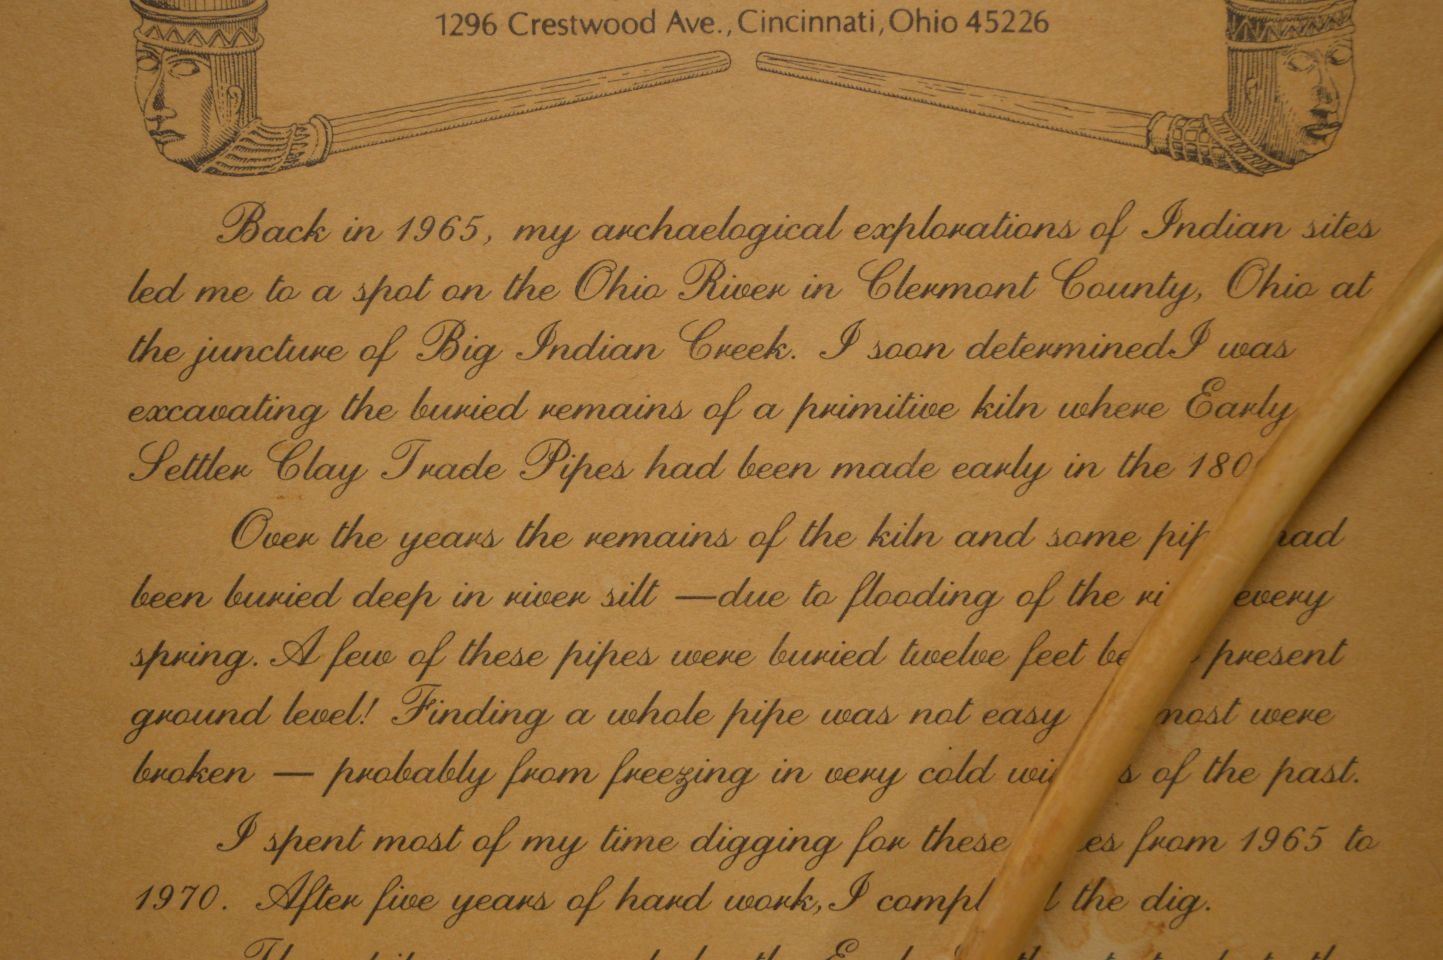 1296 Crestwood Ave., Cincinnati, Ohio 45226
Back in 1965, my archaelogical explorations of Indian sites
led me to a spot on the Ohio River in Clermont County, Ohio at
the juncture of Big Indian Creek. I soon determined I was
excavating the buried remains of a primitive kiln where Early
Settler Clay Trade Pipes had been made early in the
Over the years the remains of the kiln and some had
been buried deep in river silt — due to flooding of the every
spring. A few of these pipes were buried twelve feet present
ground level! Finding a whole pipe was not easy most were
broken — probably from freezing in very cold of the past.
I spent most of my time digging for these from 1965 to
1970. After five years of hard work, I the dig.